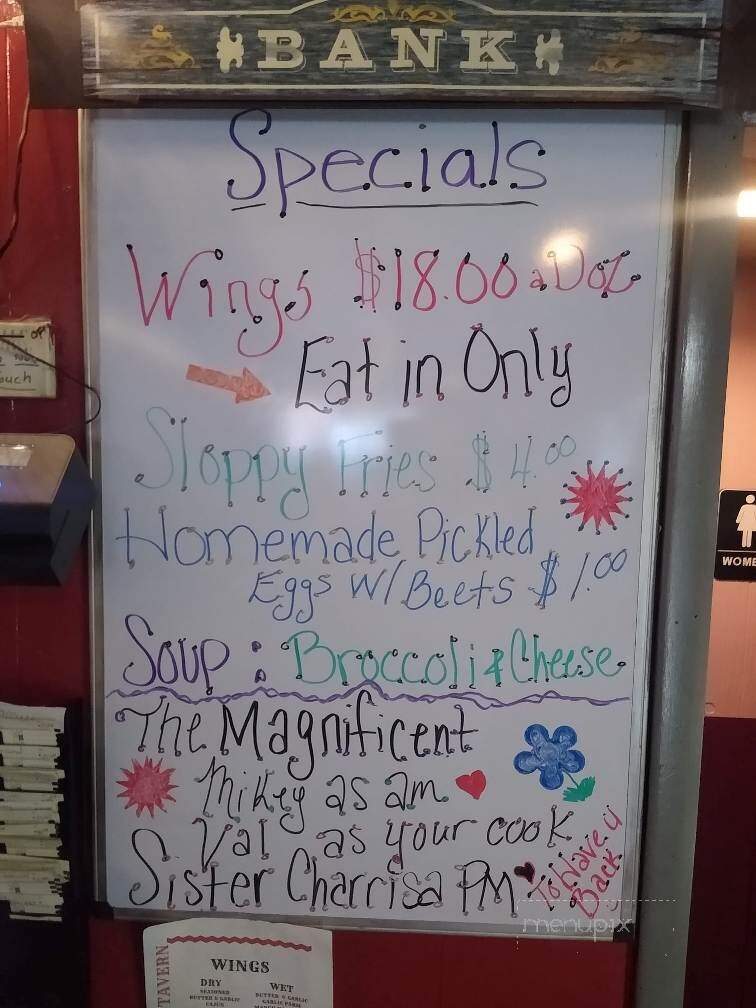 BANK
Specials
Wings $18.00 a Doz
Eat in Only
Sloppy Fries $4.00
Homemade Pickled
Eggs W/Beets $1.00
Soup: Broccoli & Cheese
The Magnificent
Mikey as am
Val as your cook
Sister Charrisa PM
To Have U
Back
menupix
ouch
WOME
TAVERN
WINGS
DRY
WET
SEASONED
BUTTER & GARLIC
BUTTER & GARLIC
CAJUN
GARLIC PARM